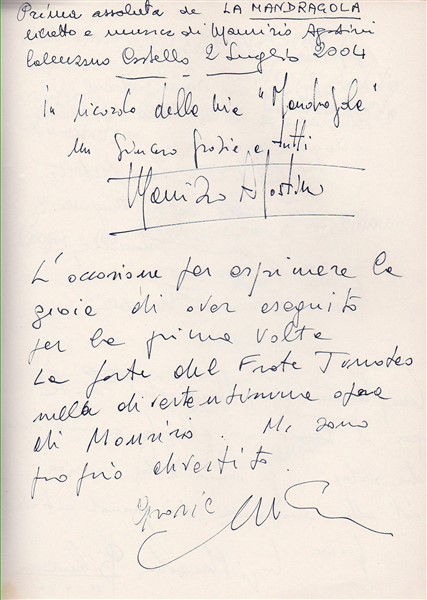 Prima assoluta de LA MANDRAGOLA
libretto e musica di Maurizio Agostini
Calenzano Castello 2 Luglio 2004
In ricordo della mia "Mandragola"
un sincero grazie a tutti
Maurizio Agostini
L'occasione per esprimere la
gioia di aver eseguito
per la prima volta
La parte del Frate Timoteo
nella divertentissima opera
di Maurizio. Mi sono
proprio divertito.
Grazie